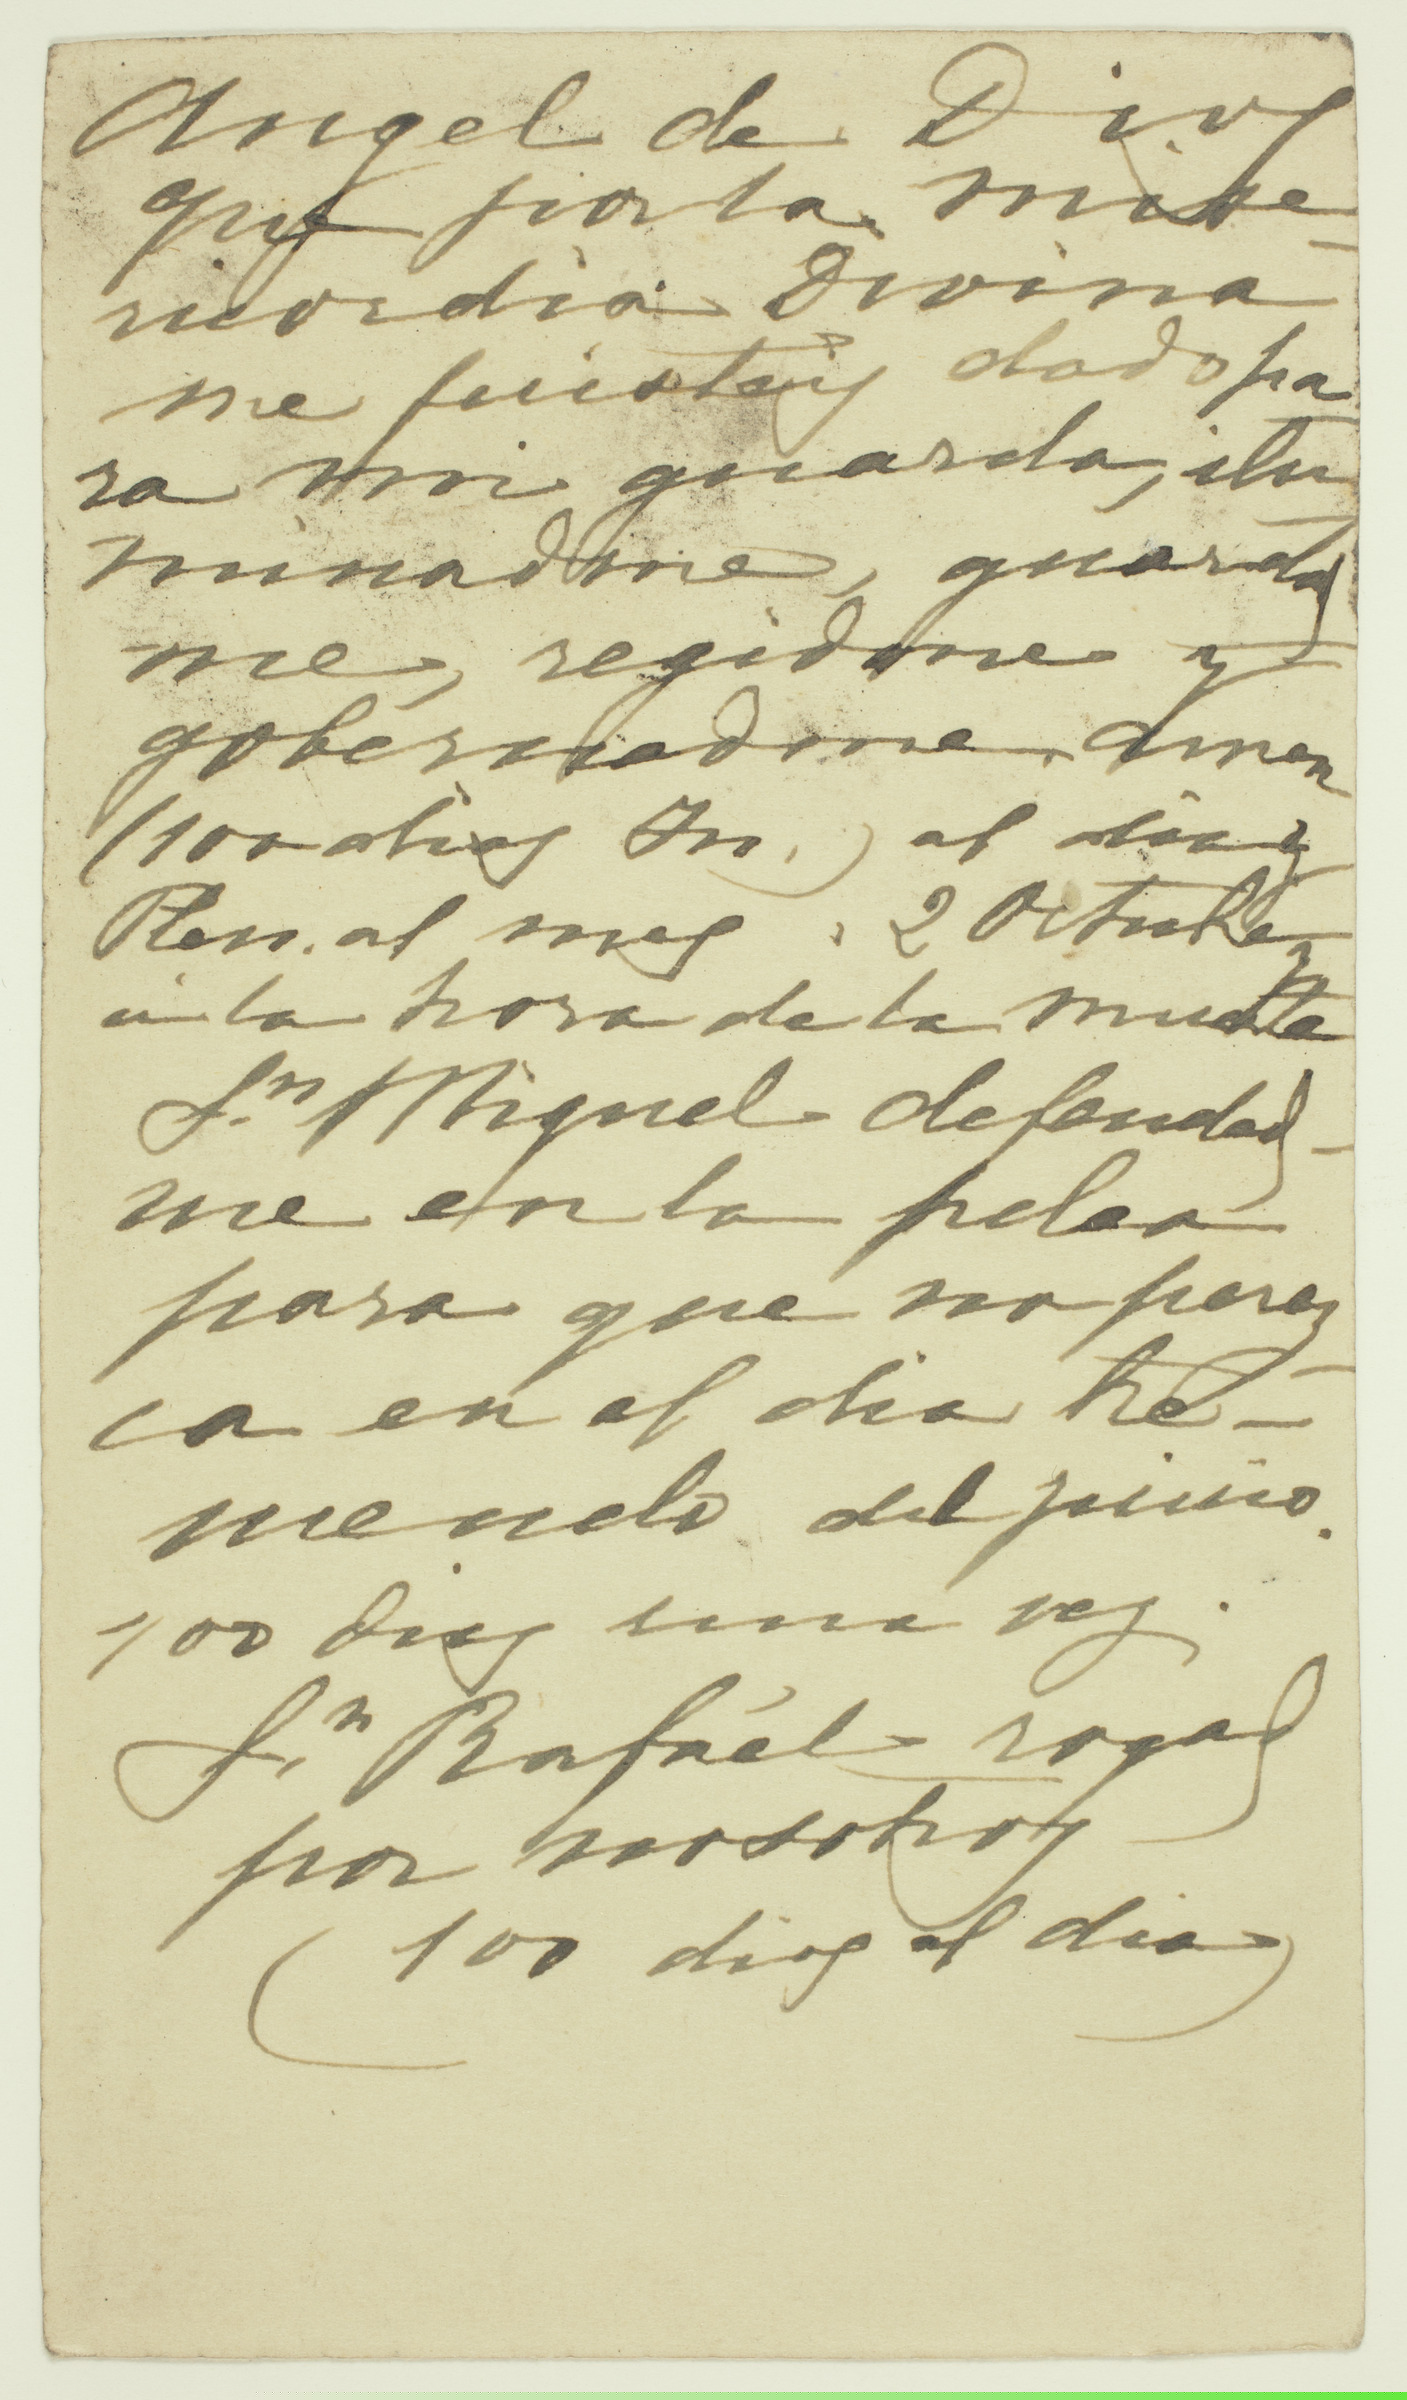 Angel de Dios
que por la mise-
ricordia Divina
me fuisteis dado pa
ra mi guarda, ilu
minadme, guardad
me, regidme y
gobernadme. Amen
(100 dias In.) al dia y
Plen. al mes. 2 Octubre y
in la hora de la muerte
Sn. Miguel defendad-
me en la pelea
para que no perez
ca en el dia tre-
mendo del juicio.
100 dias una vez.
Sn. Rafaél rogad
por nosotros
(100 dias al dia)